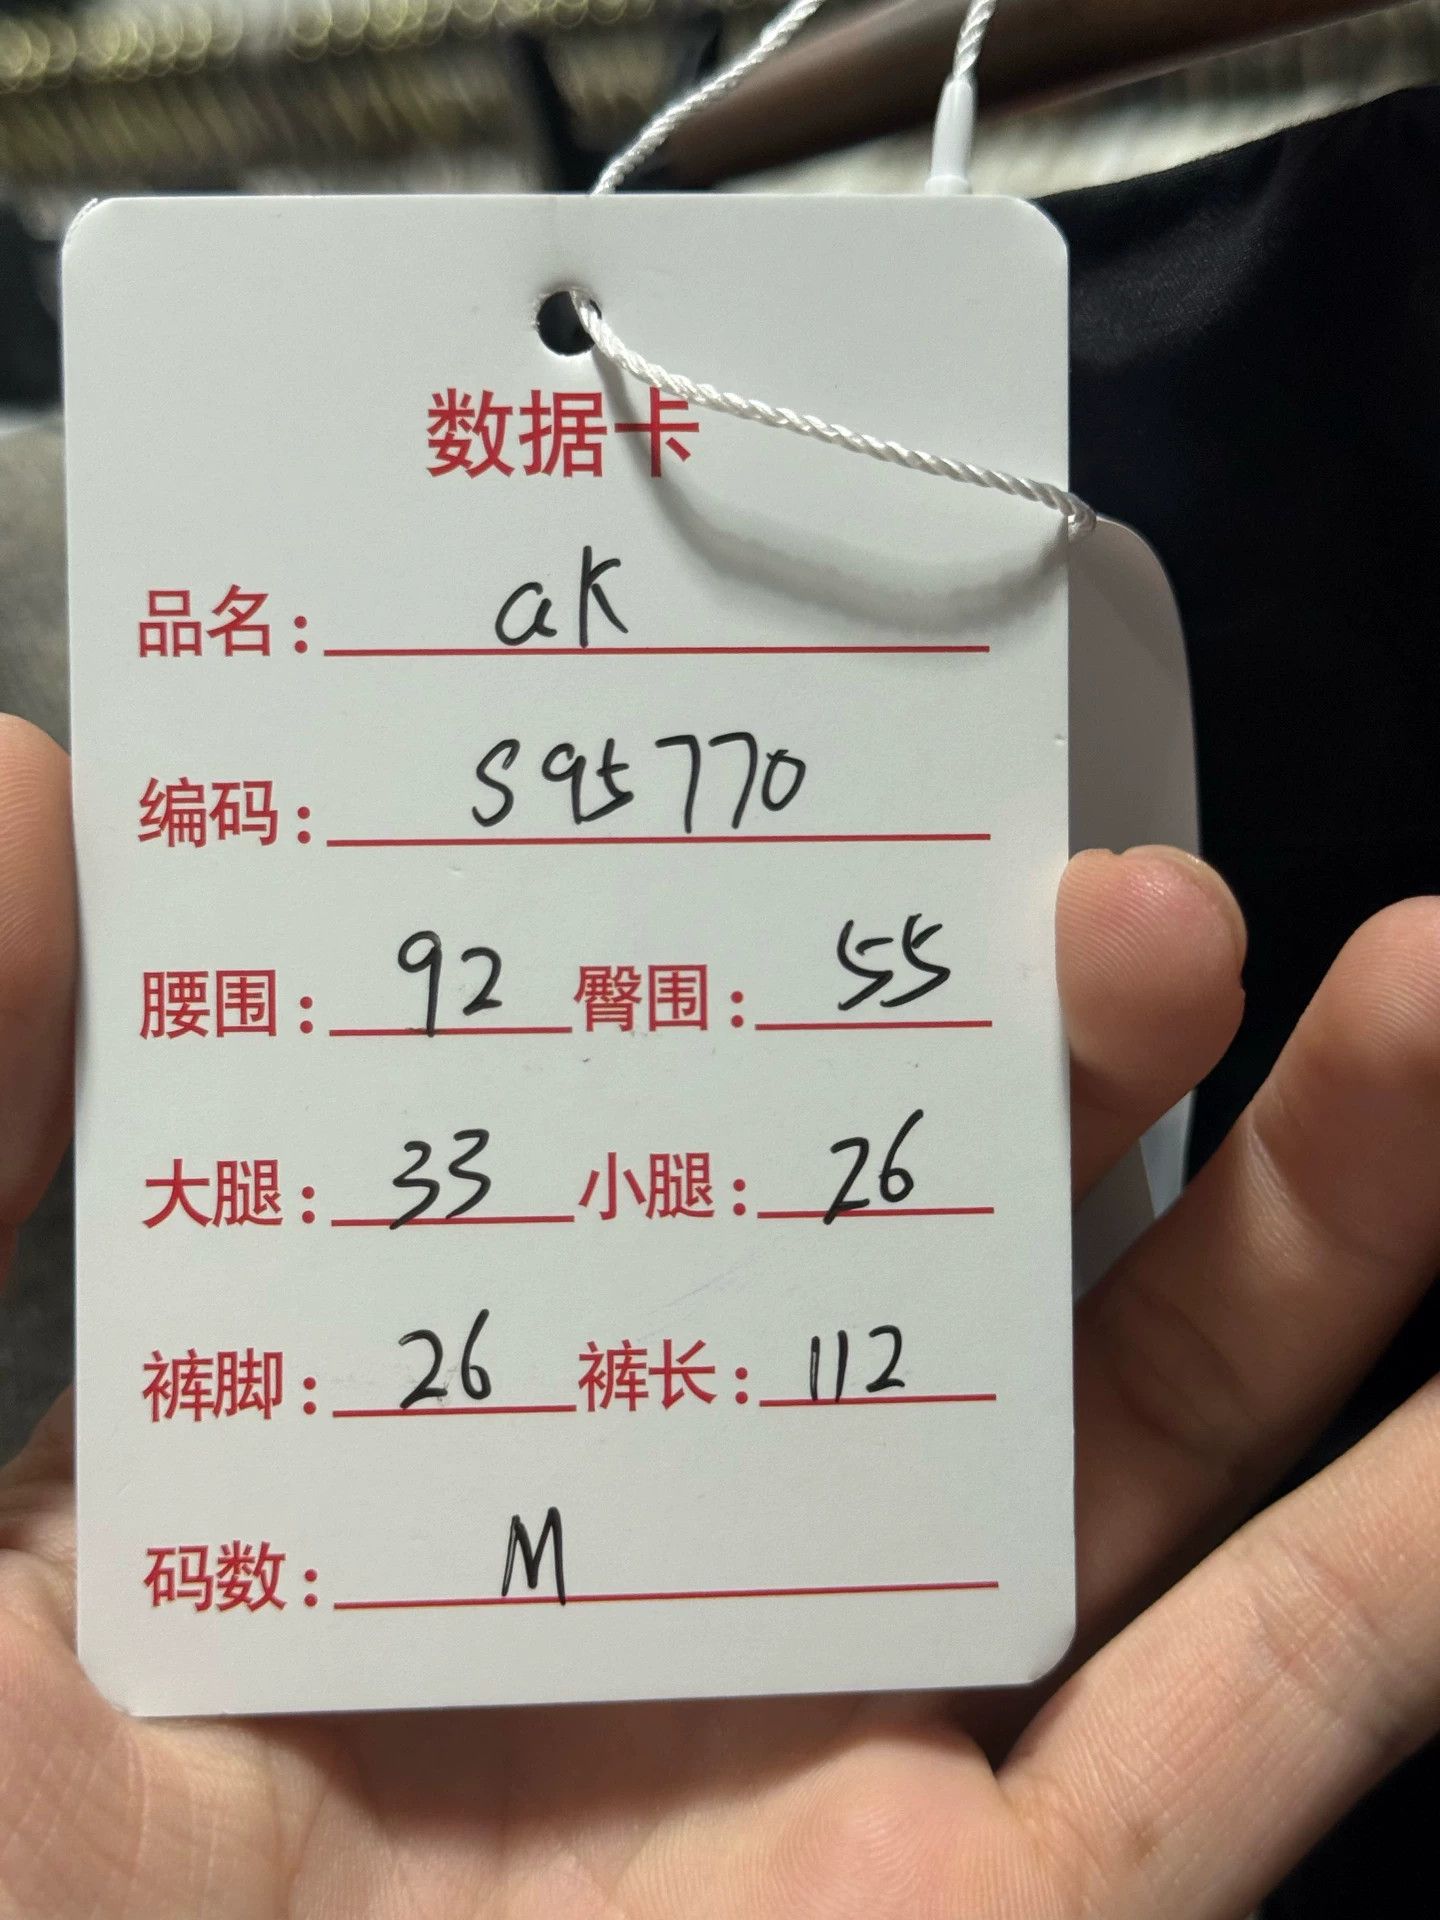 数据卡
品名: ak
编码: S95770
腰围: 92 臀围: 55
大腿: 33 小腿: 26
裤脚: 26 裤长: 112
码数: M